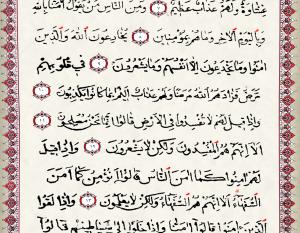 غشاوة ولهم عذاب عظيم ۝ ومن الناس من يقول امنا بالله
وباليوم الاخر وما هم بمؤمنين ۝ يخادعون الله والذين
امنوا وما يخدعون الا انفسهم وما يشعرون ۝ في قلوبهم
مرض فزادهم الله مرضا ولهم عذاب اليم بما كانوا يكذبون ۝
واذا قيل لهم لا تفسدوا في الارض قالوا انما نحن مصلحون ۝
الا انهم هم المفسدون ولكن لا يشعرون ۝ واذا قيل
لهم امنوا كما امن الناس قالوا انؤمن كما امن
السفهاء الا انهم هم السفهاء ولكن لا يعلمون ۝ واذا لقوا
الذين امنوا قالوا امنا واذا خلوا الى شياطينهم قالوا